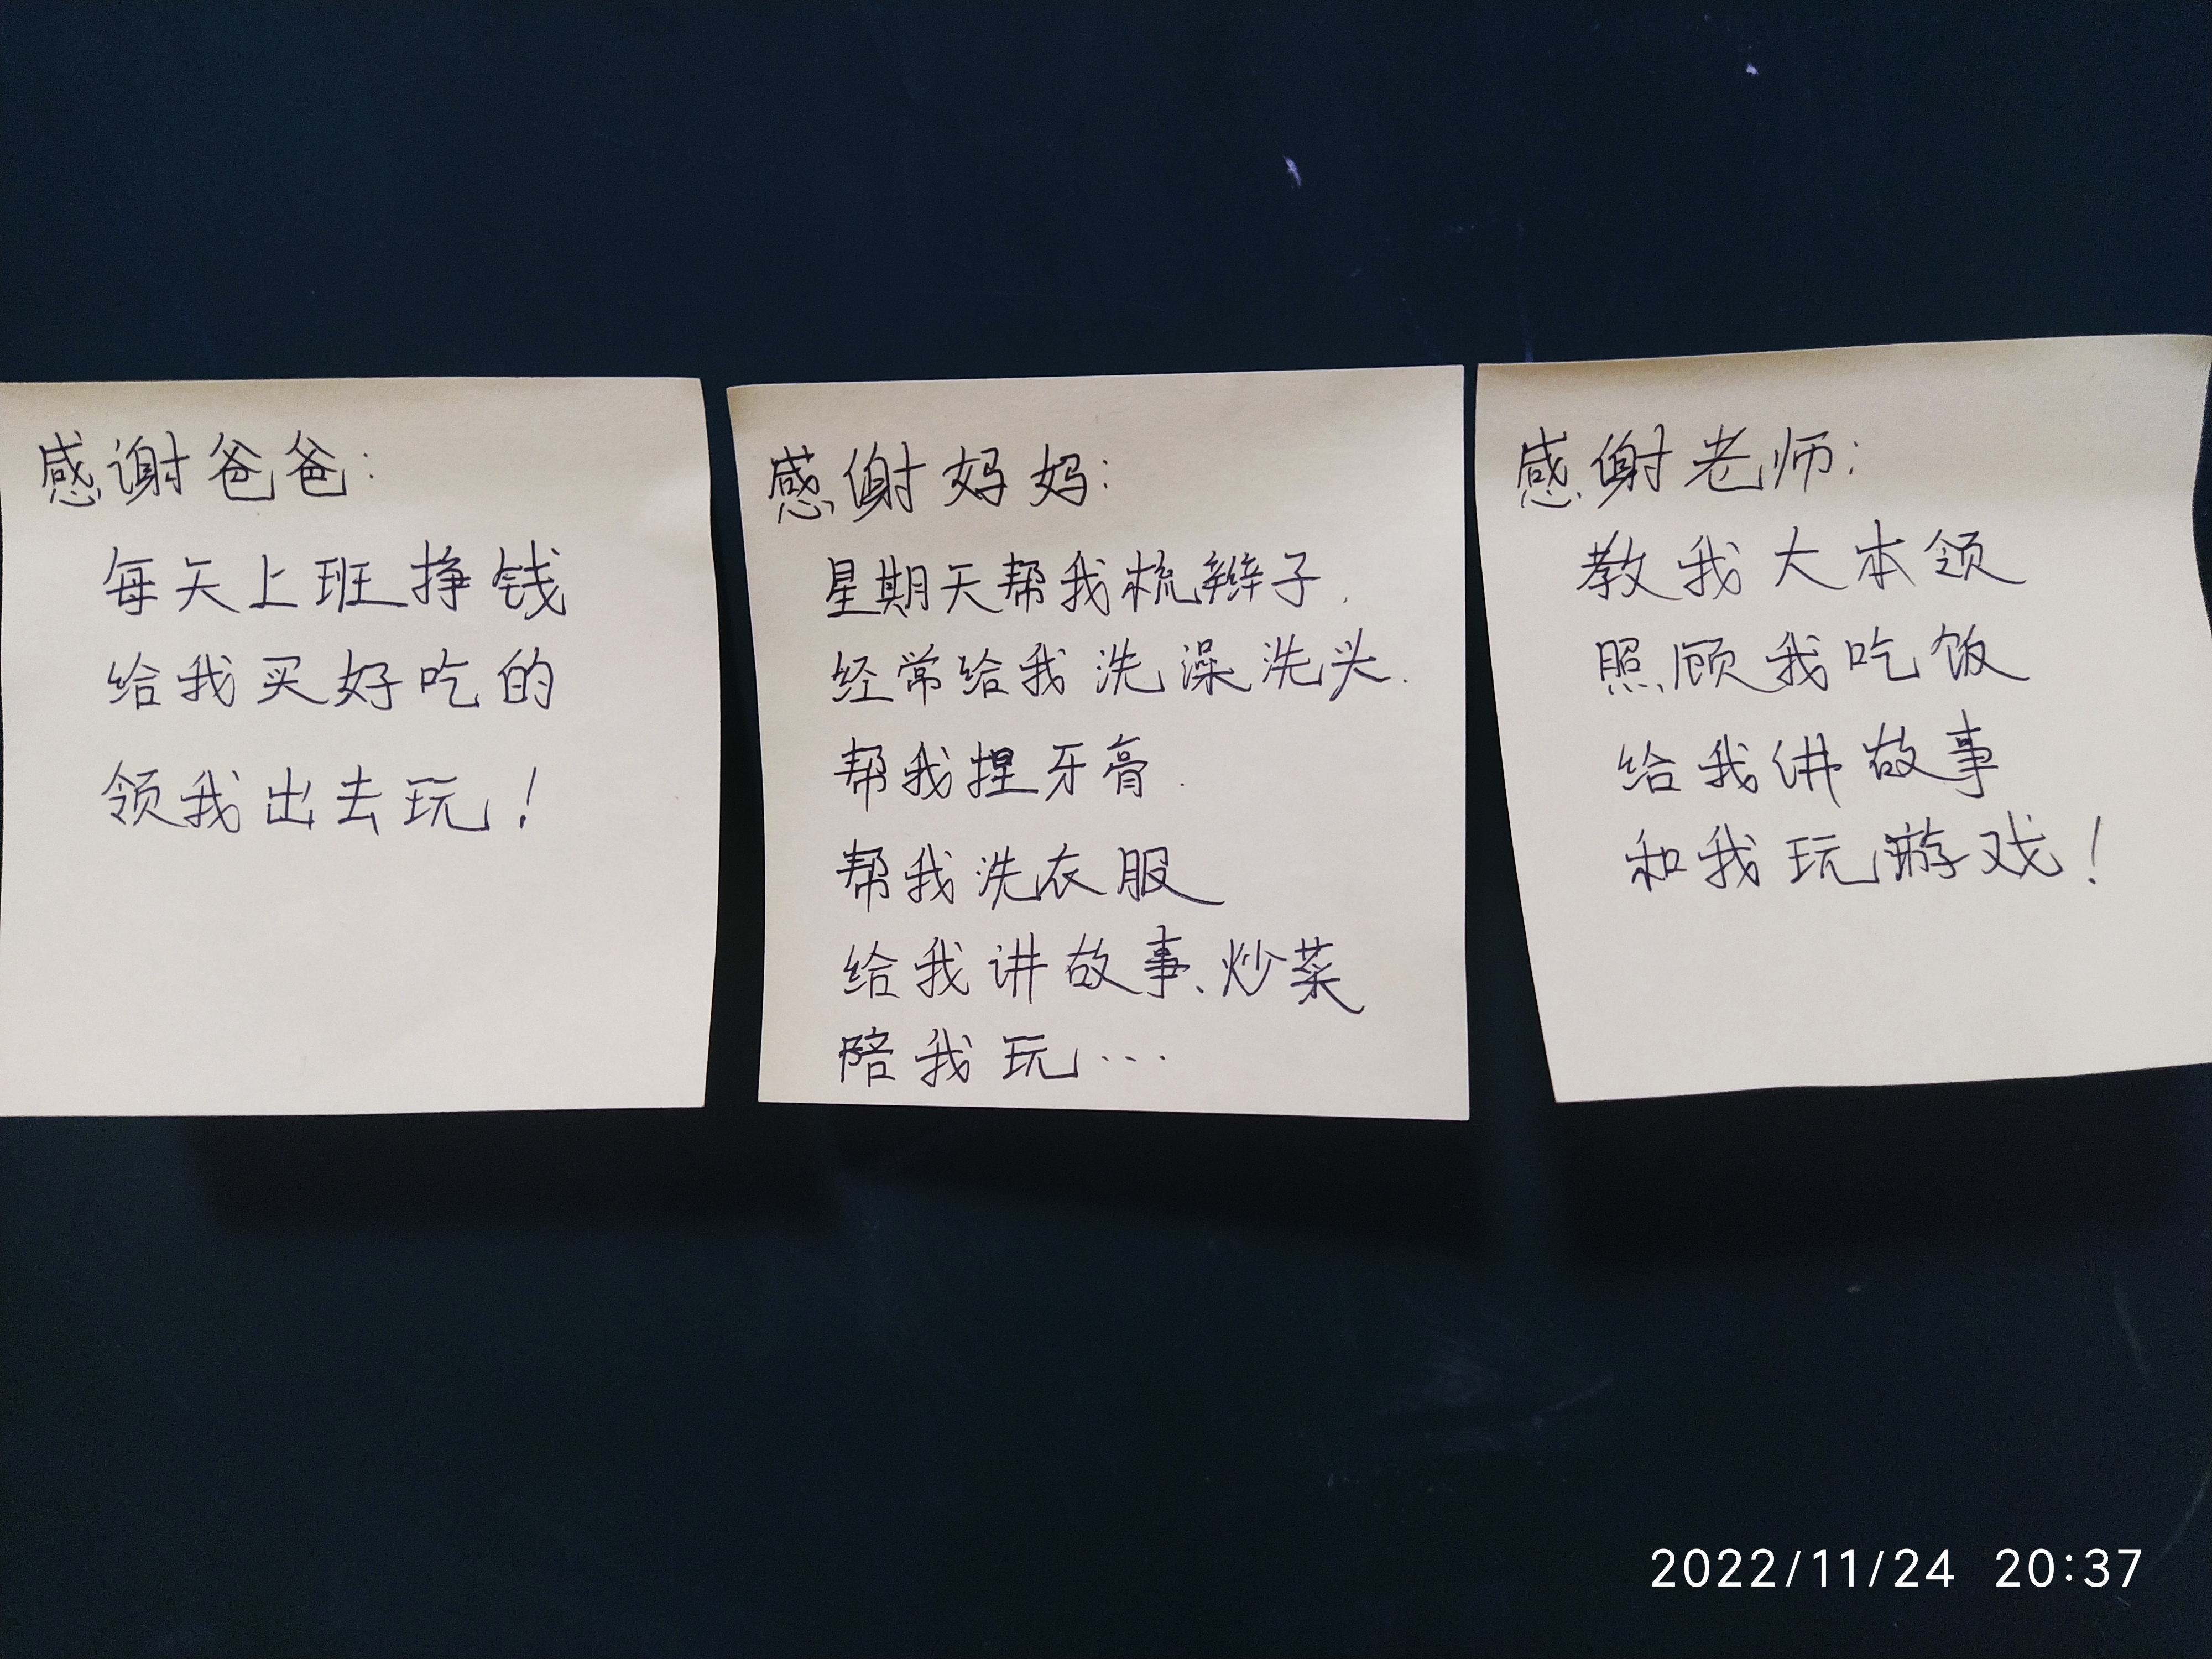 感谢爸爸:
每天上班挣钱
给我买好吃的
领我出去玩!
感谢妈妈:
星期天帮我梳辫子.
经常给我洗澡洗头.
帮我捏牙膏.
帮我洗衣服
给我讲故事、炒菜
陪我玩...
感谢老师:
教我大本领
照顾我吃饭
给我讲故事
和我玩游戏!
2022/11/24 20:37